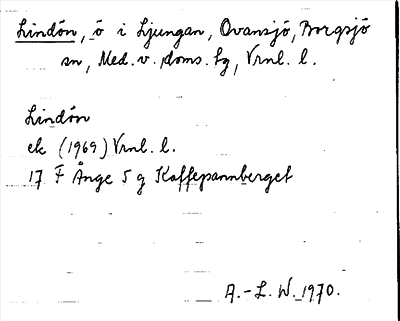 Lindön, ö i Ljungan, Ovansjö, Borgsjö
sn, Med. v. doms. hg, Vrnl. l.
Lindön
ek (1969) Vrnl. l.
17 F Ånge 5 g Kaffepannberget
A.-L. W. 1970.